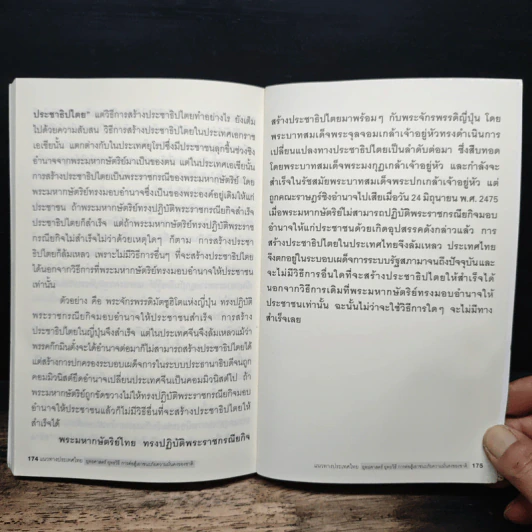 ประชาธิปไตย" แต่วิธีการสร้างประชาธิปไตยทำอย่างไร ยังเต็ม
ไปด้วยความสับสน วิธีการสร้างประชาธิปไตยในประเทศเอกราช
เอเชียนั้น แตกต่างกับในประเทศยุโรปซึ่งมีประชาชนลุกขึ้นช่วงชิง
อำนาจจากพระมหากษัตริย์มาเป็นของตน แต่ในประเทศเอเชียนั้น
การสร้างประชาธิปไตยเป็นพระราชกรณียของพระมหากษัตริย์ โดย
พระมหากษัตริย์ทรงมอบอำนาจซึ่งเป็นของพระองค์อยู่เดิมให้แก่
ประชาชน ถ้าพระมหากษัตริย์ทรงปฏิบัติพระราชกรณียกิจสำเร็จ
ประชาธิปไตยก็สำเร็จ แต่ถ้าพระมหากษัตริย์ทรงปฏิบัติพระราช
กรณียกิจไม่สำเร็จไม่ว่าด้วยเหตุใดๆ ก็ตาม การสร้างประชา
ธิปไตยก็ล้มเหลว เพราะไม่มีวิธีการอื่นๆ ที่จะสร้างประชาธิปไตย
ได้นอกจากวิธีการที่พระมหากษัตริย์ทรงมอบอำนาจให้ประชาชน
เท่านั้น
ตัวอย่าง คือ พระจักรพรรดิมัตซูฮิโตแห่งญี่ปุ่น ทรงปฏิบัติ
พระราชกรณียกิจมอบอำนาจให้ประชาชนสำเร็จ การสร้าง
ประชาธิปไตยในญี่ปุ่นจึงสำเร็จ แต่ในประเทศจีนจึงล้มเหลวแม้ว่า
พรรคก๊กมินตั๋งจะได้อำนาจต่อมาก็ไม่สามารถสร้างประชาธิปไตยได้
แต่สร้างการปกครองระบอบเผด็จการในระบบประธานาธิบดีจนถูก
คอมมิวนิสต์ยึดอำนาจเปลี่ยนประเทศจีนเป็นคอมมิวนิสต์ไป ถ้า
พระมหากษัตริย์ถูกขัดขวางไม่ให้ทรงปฏิบัติพระราชกรณียกิจมอบ
อำนาจให้ประชาชนแล้วก็ไม่มีวิธีอื่นที่จะสร้างประชาธิปไตยให้
สำเร็จได้
พระมหากษัตริย์ไทย ทรงปฏิบัติพระราชกรณียกิจ
174 แนวทางประเทศไทย
สร้างประชาธิปไตยมาพร้อมๆ กับพระจักรพรรดิญี่ปุ่น โดย
พระบาทสมเด็จพระจุลจอมเกล้าเจ้าอยู่หัวทรงดำเนินการ
เปลี่ยนแปลงทางประชาธิปไตยเป็นลำดับต่อมา ซึ่งสืบทอด
โดยพระบาทสมเด็จพระมงกุฎเกล้าเจ้าอยู่หัว และกำลังจะ
สำเร็จในรัชสมัยพระบาทสมเด็จพระปกเกล้าเจ้าอยู่หัว แต่
ถูกคณะราษฎร์ชิงอำนาจไปเสียเมื่อวัน 24 มิถุนายน พ.ศ. 2475
เมื่อพระมหากษัตริย์ไม่สามารถปฏิบัติพระราชกรณียกิจมอบ
อำนาจให้แก่ประชาชนด้วยเกิดอุปสรรคดังกล่าวแล้ว การ
สร้างประชาธิปไตยในประเทศไทยจึงล้มเหลว ประเทศไทย
จึงตกอยู่ในระบอบเผด็จการระบบรัฐสภามาจนถึงปัจจุบันและ
จะไม่มีวิธีการอื่นใดที่จะสร้างประชาธิปไตยให้สำเร็จได้
นอกจากวิธีการเดิมที่พระมหากษัตริย์ทรงมอบอำนาจให้
ประชาชนเท่านั้น ฉะนั้นไม่ว่าจะใช้วิธีการใดๆ จะไม่มีทาง
สำเร็จเลย
แนวทางประเทศไทย 175